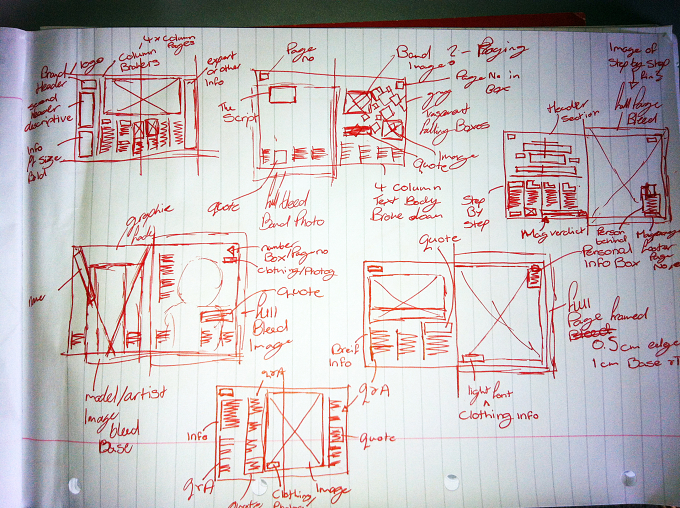 Brand
logo
Header
second
header
descriptive
Info
Pt Size
Bold
4 x column
Pages
Column
expert
or other
info
Page
no
The
Script
quote
full bleed
Band Photo
Band
Images
2 - Paging
Page No in
Box
falling Boxes
Image
Quote
4 column
Text Body
Broke down
Image of
Step by Step
full Page
Bleed
Header
section
Step
By
Step
Mag verdict
Person
behind
Personal
Info Box
footer
Page
graphic
line
model/artist
Image
bleed
Base
number
Box/Page no
Clothing/Photog
Quote
full
Bleed
Image
quote
Breif
Info
light font
Clothing info
full
Page framed
Bleed
0.5cm edge
1cm Base
Info
qrA
qrA
qrA
quote
quote
Clothing/
Image